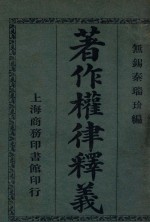 無錫秦瑞玠編
著作權律釋義
上海商務印書館印行